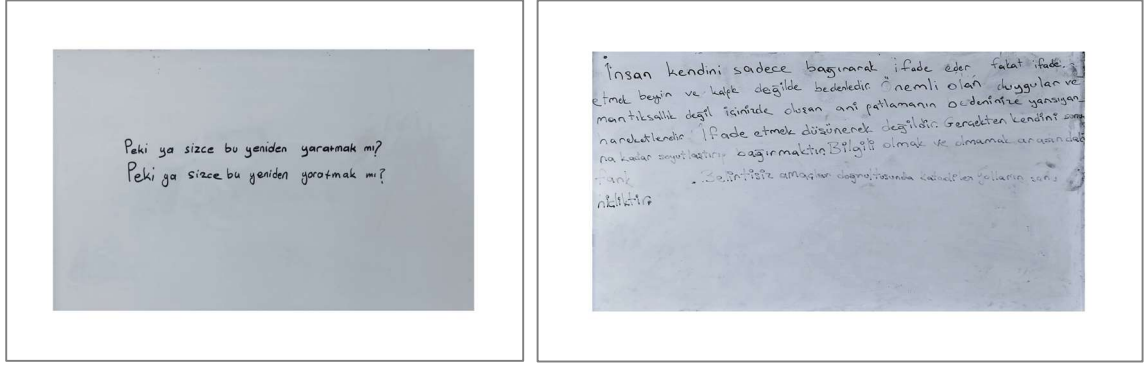 Peki ya sizce bu yeniden yaratmak mı?
Peki ya sizce bu yeniden yaratmak mı?
İnsan kendini sadece bağırarak ifade eder fakat ifade
etmek beyin ve kalple değilde bedenledir. Önemli olan duygular ve
mantıksallık değil içinizde oluşan ani patlamanın bedeninize yansıyan
hareketlerdir. İfade etmek düşünerek değildir. Gerçekten kendini
na kadar soyutlaştırıp bağırmaktır. Bilgili olmak ve olmamak arasındaki
fark
Belirtisiz amaçlar doğrultusunda